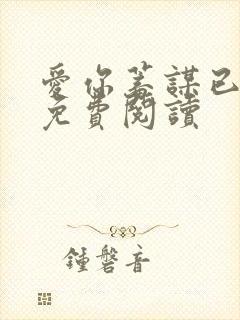 愛你蓄謀已
免費閱讀
鍾磬音